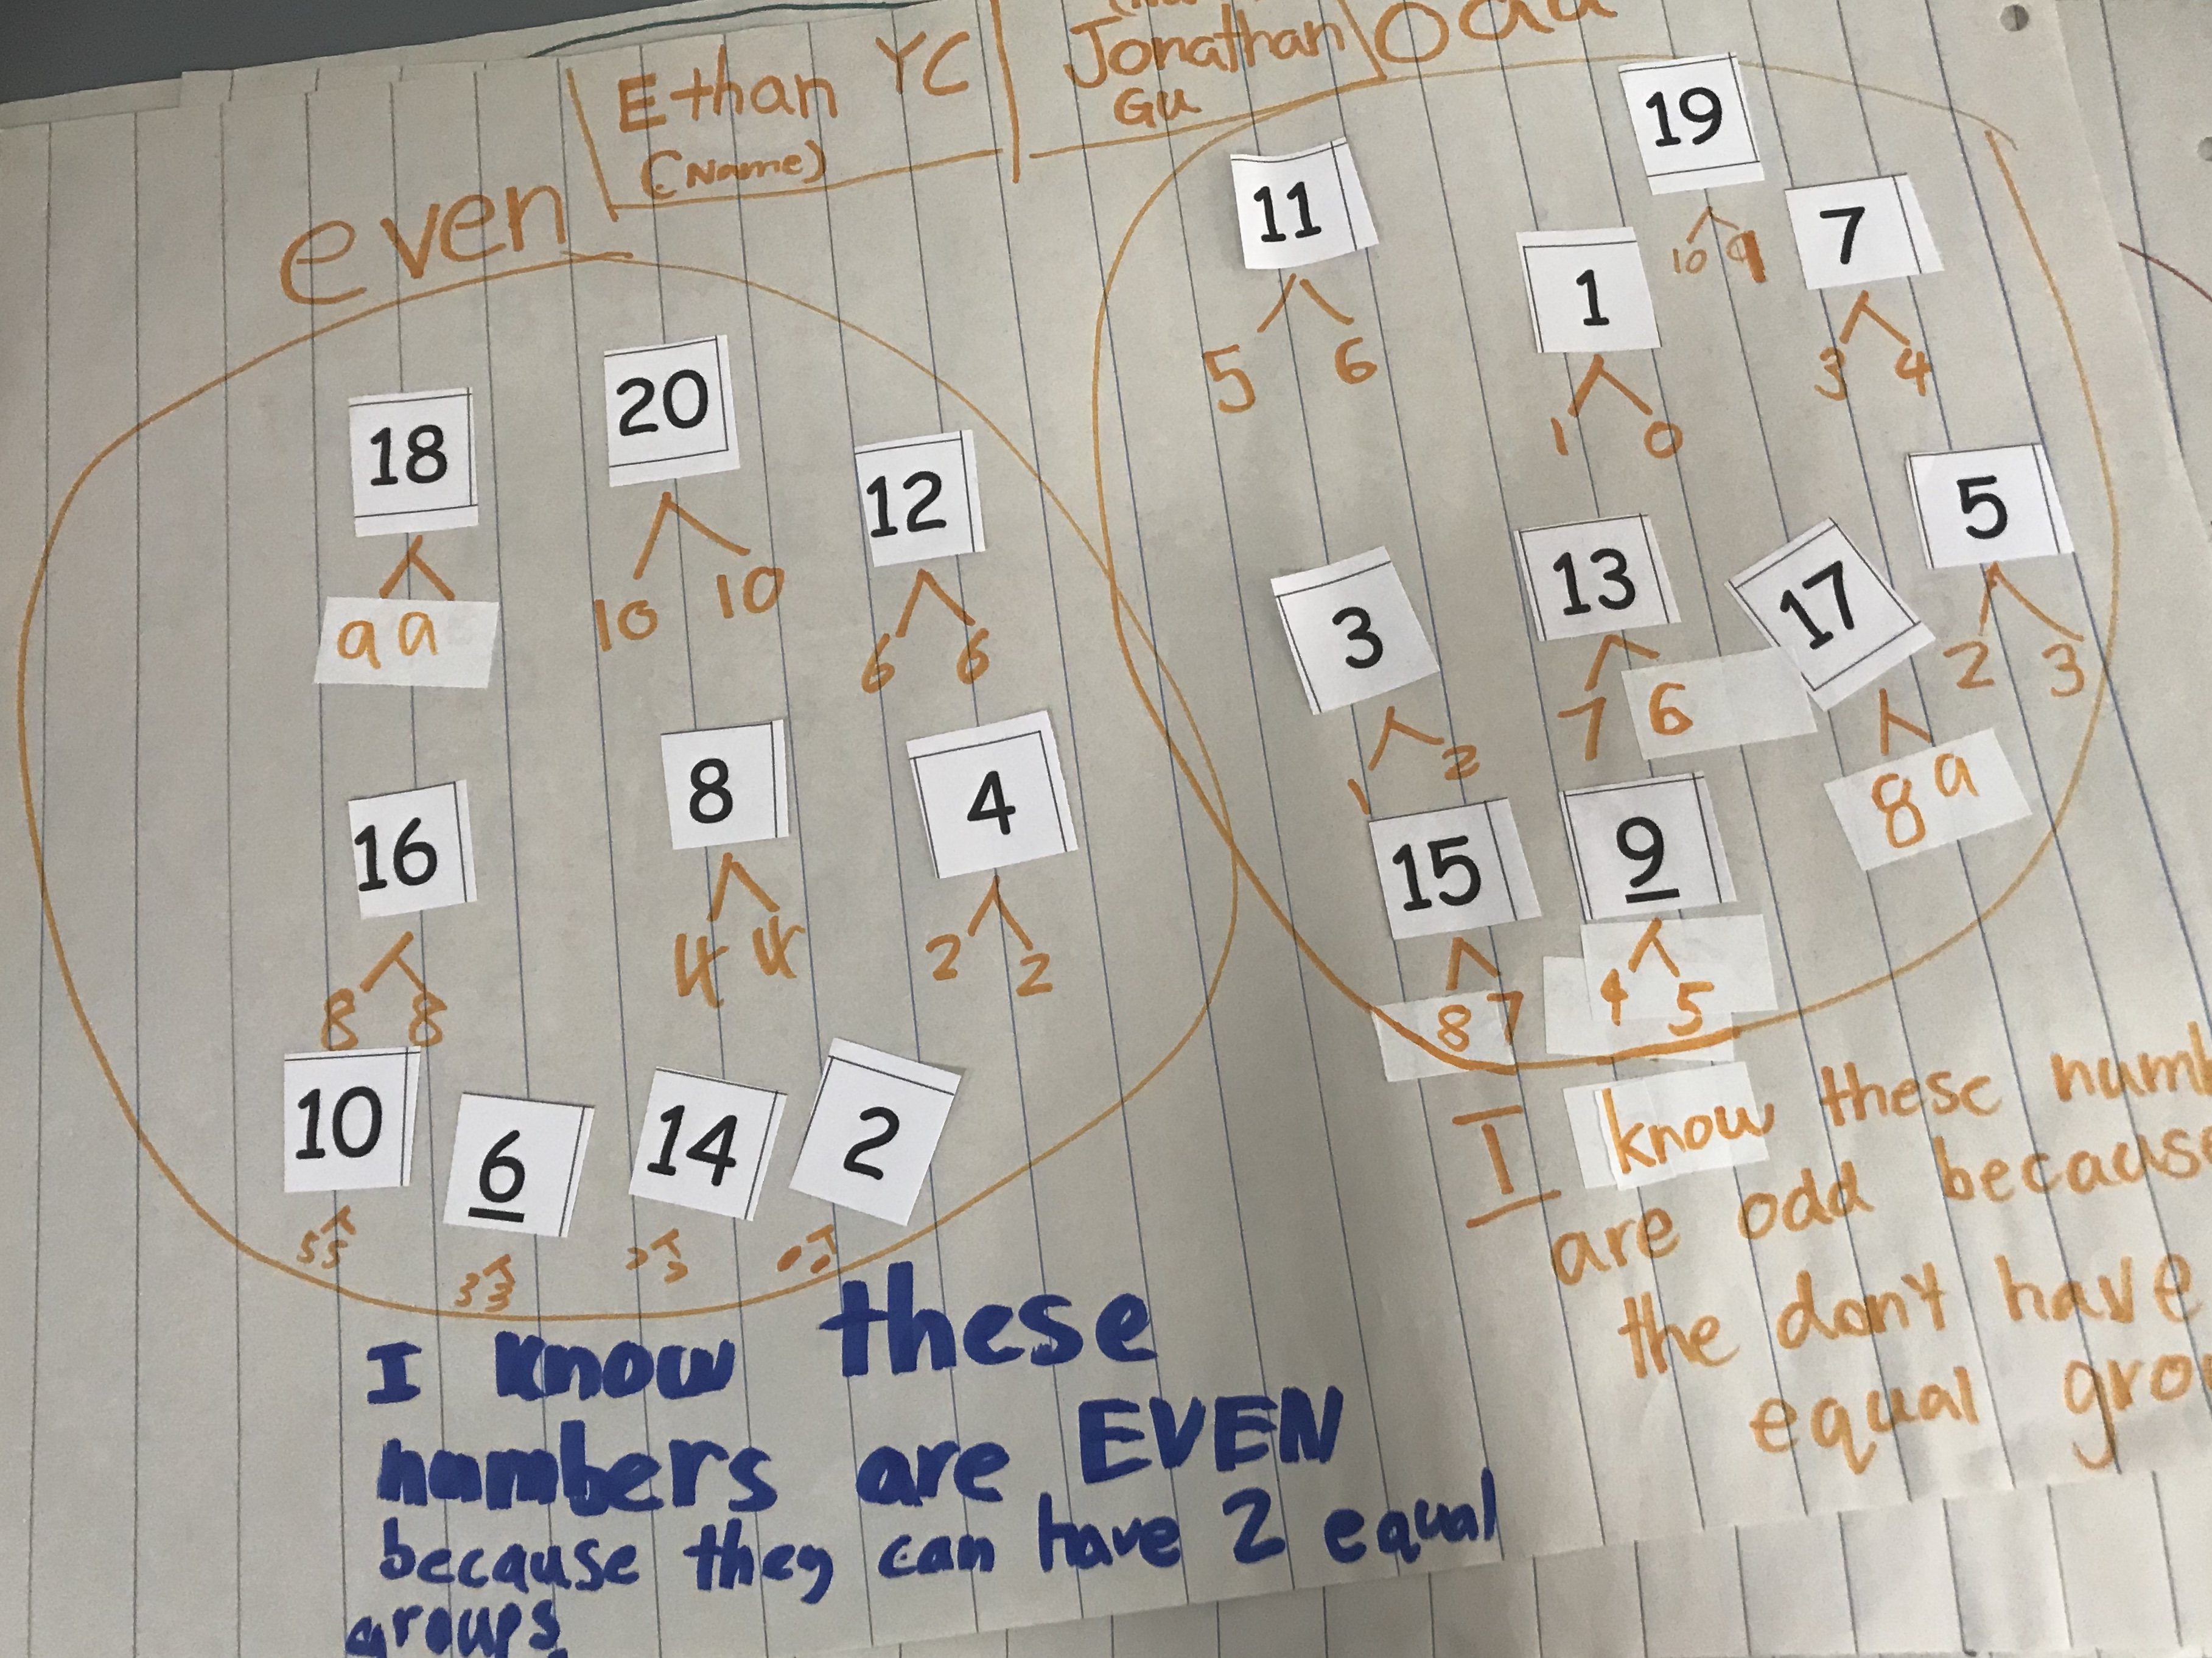 Ethan YC
(Name)
Jonathan
Gu
odd
even
18
9 9
20
10 10
12
6 6
16
8 8
8
4 4
4
2 2
10
5 5
6
3 3
14
2
11
5 6
19
10 9
1
1 0
7
3 4
3
1 2
13
7 6
17
8 9
5
2 3
15
8 7
9
4 5
I know these
numbers are EVEN
because they can have 2 equal
groups
I know these numb
are odd because
the don't have
equal grou